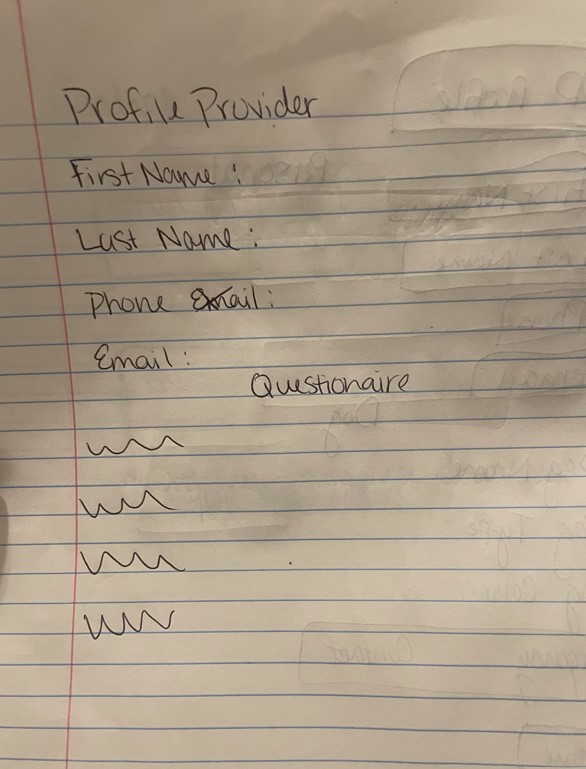 Profile Provider
First Name :
Last Name :
Phone Email :
Email :
Questionaire